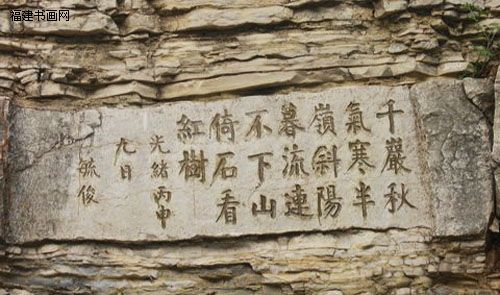 福建书画网
千巖秋
氣寒半
嶺斜陽
暮流連
不下山
倚石看
紅樹
光緒丙申
九日
毓俊